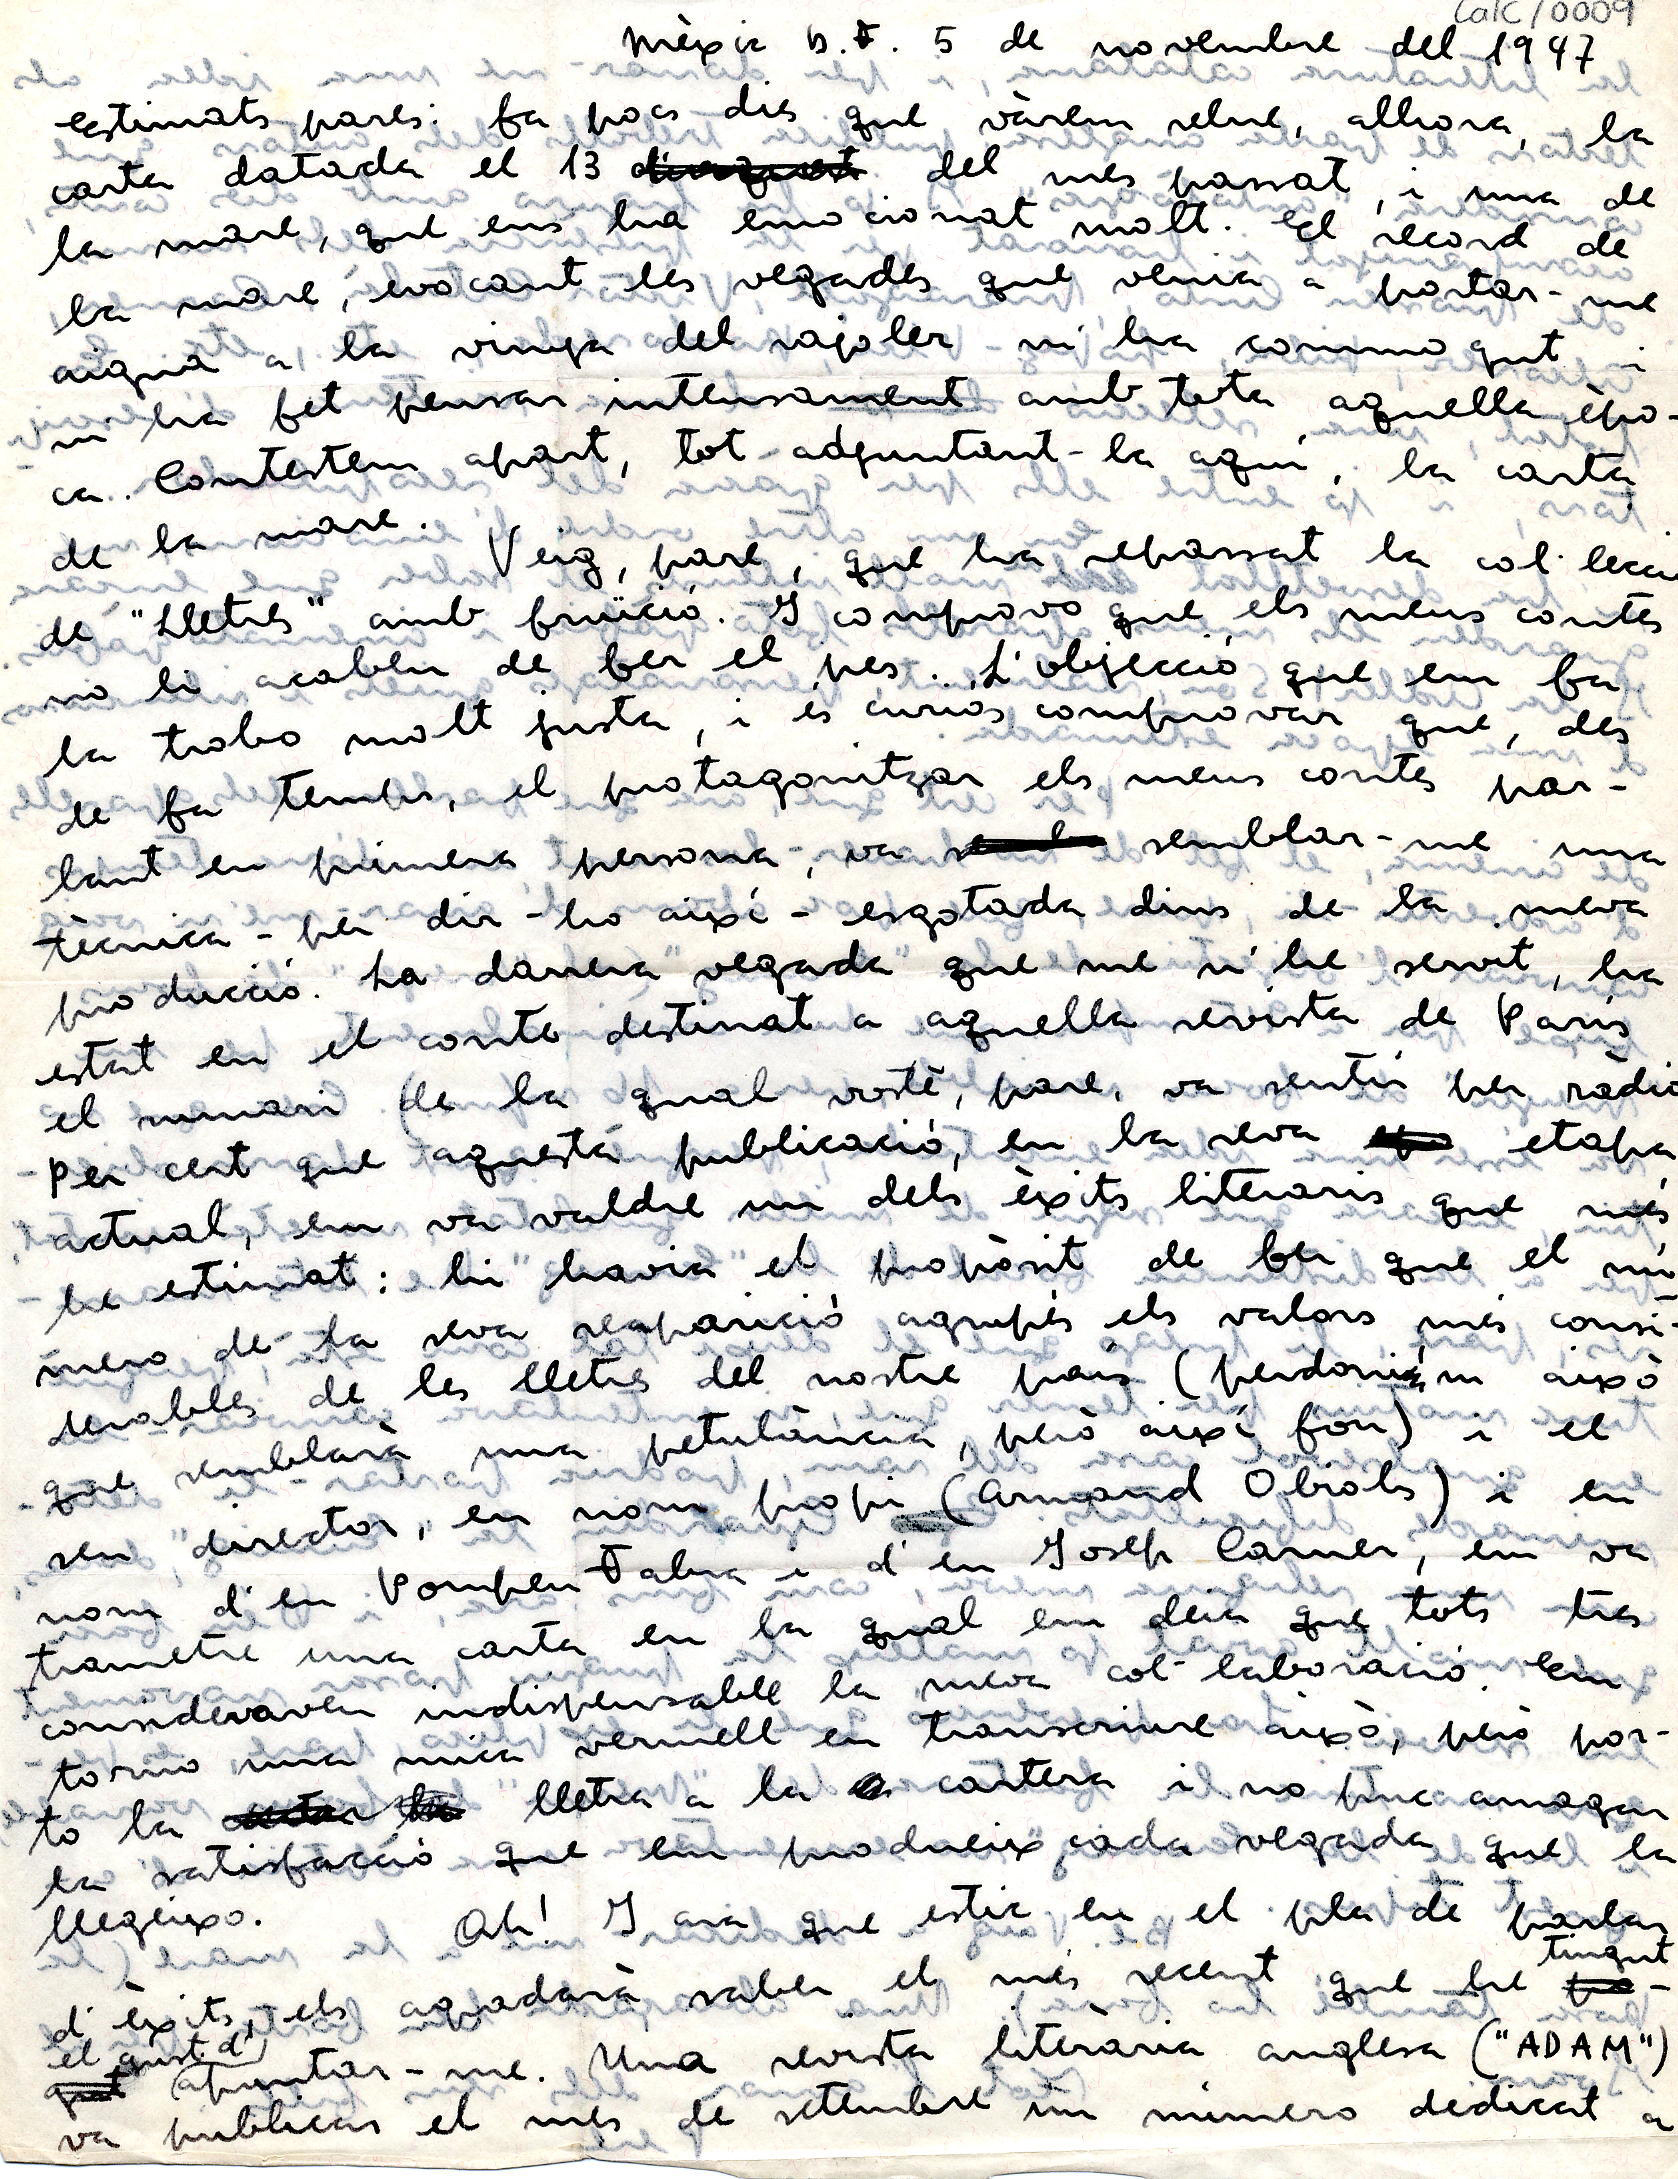 CalC/0009
Mèxic D.F. 5 de novembre del 1947
Estimats pares: fa pocs dies que vàrem rebre, alhora, la
carta datada el 13 d'aquest del mes passat, i una de
la mare, que ens ha emocionat molt. El record de
la mare, evocant les vegades que venia a portar-me
aigua a la vinya del rajoler m'ha commogut i
m'ha fet pensar intensament amb tota aquella èpo-
ca. Contestem apart, tot adjuntant-la aquí, la carta
de la mare. Veig, pare, que ha repassat la col·lecció
de "Lletres" amb fruïció. I comprovo que els meus contes
no li acaben de fer el pes. L'objecció que em fa
la trobo molt justa, i és curiós comprovar que, des
de fa temps, el protagonitzar els meus contes par-
lant en primera persona, va semblar-me una
tècnica - per dir-ho així - esgotada dins de la meva
producció. La darrera vegada que me n'he servit, ha
estat en el conte destinat a aquella revista de París
el sumari de la qual vostè, pare, va sentir per ràdio
Per cert que aquesta publicació, en la seva etapa
actual, em va valdre un dels èxits literaris que més
he estimat: hi havia el propòsit de fer que el nú
mero de la seva reaparició agrupés els valors més consi-
derables de les lletres del nostre país (perdonin'm això
que semblarà una petulància, però així fou) i el
seu director, en nom propi (Armand Obiols) i en
nom d'en Pompeu Fabra i d'en Josep Carner, em va
trametre una carta en la qual em deia que tots tres
consideraven indispensable la meva col·laboració. Em
torno una mica vermell en transcriure això, però por-
to la lletra a la cartera i no puc amagar
la satisfacció que em produeix cada vegada que la
llegeixo. Ah! I ara que estic en el pla de parlar
d'èxits, els agradarà saber el més recent que he tingut
el gust d'apuntar-me. Una revista literària anglesa ("ADAM")
va publicar el mes de setembre un número dedicat a